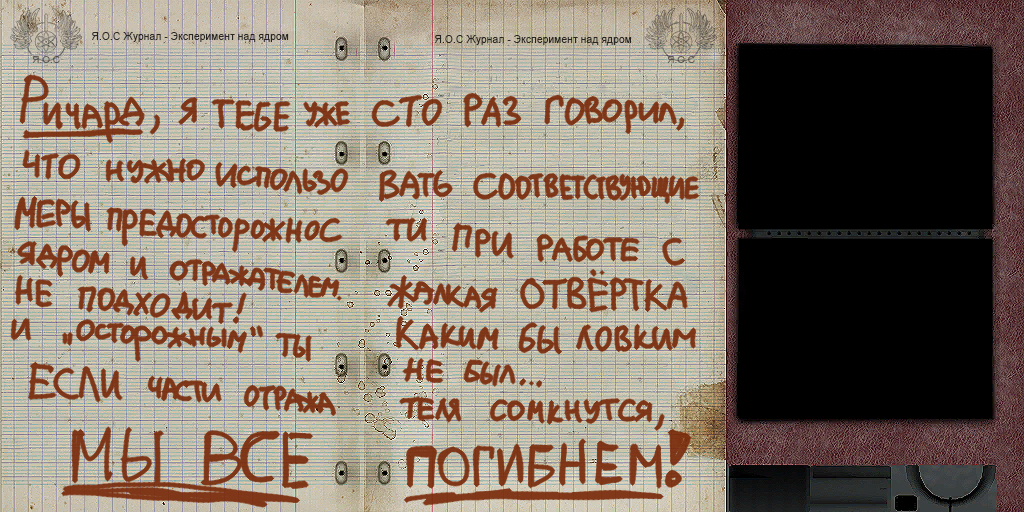 Я.О.С Журнал - Эксперимент над ядром Я.О.С Журнал - Эксперимент над ядром
Я.О.С Я.О.С
РИЧАРД, Я ТЕБЕ УЖЕ СТО РАЗ ГОВОРИЛ,
ЧТО НУЖНО ИСПОЛЬЗО ВАТЬ СООТВЕТСТВУЮЩИЕ
МЕРЫ ПРЕДОСТОРОЖНОС ТИ ПРИ РАБОТЕ С
ЯДРОМ И ОТРАЖАТЕЛЕМ. ЖАЛКАЯ ОТВЁРТКА
НЕ ПОДХОДИТ! КАКИМ БЫ ЛОВКИМ
И „ОСТОРОЖНЫМ" ТЫ НЕ БЫЛ...
ЕСЛИ ЧАСТИ ОТРАЖА ТЕЛЯ СОМКНУТСЯ,
МЫ ВСЕ ПОГИБНЕМ!